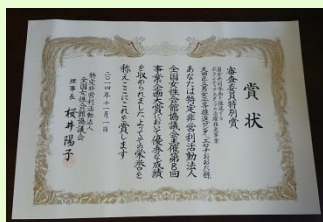 賞状
審査委員特別賞
あなたは特定非営利活動法人
全国女性会館協議会主催第8回
事業企画大賞において優秀な成績
を収められましたのでその栄誉を
称えここにこれを賞します
二〇一四年十一月一日
特定非営利活動法人
全国女性会館協議会
理事長 桜井陽子